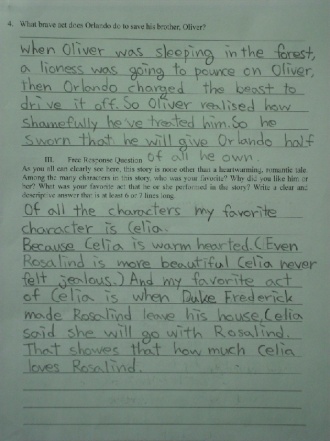 4. What brave act does Orlando do to save his brother, Oliver?
When Oliver was sleeping in the forest,
a lioness was going to pounce on Oliver,
then Orlando charged the beast to
drive it off. So Oliver realised how
shamefully he've treated him. So he
sworn that he will give Orlando half
of all he own
III. Free Response Question
As you all can clearly see here, this story is none other than a heartwarming, romantic tale.
Among the many characters in this story, who was your favorite? Why did you like him or
her? What was your favorite act that he or she performed in the story? Write a clear and
descriptive answer that is at least 6 or 7 lines long.
Of all the characters my favorite
character is Celia.
Because Celia is warm hearted. (Even
Rosalind is more beautiful Celia never
felt jealous.) And my favorite act
of Celia is when Duke Frederick
made Rosalind leave his house, Celia
said she will go with Rosalind.
That showes that how much Celia
loves Rosalind.